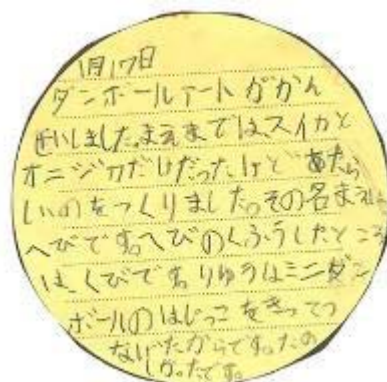 1月17日
ダンボールアートがかん
せいしました。まえまではスイカと
オニジカだけだったけど あたら
しいのをつくりました。その名まえは
へびです。へびのくふうしたところ
は、くびです。りゆうはミニダン
ボールのはじっこをきってつ
なげたからです。たの
しかったです。